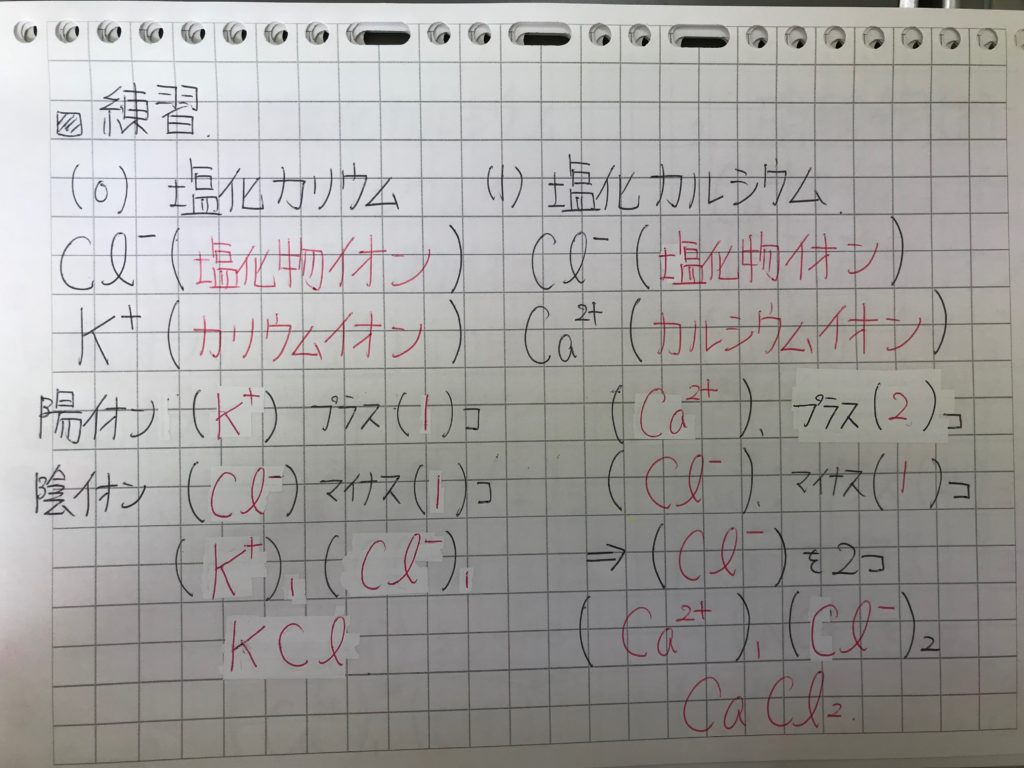 練習.
(0) 塩化カリウム (1) 塩化カルシウム.
Cl⁻ (塩化物イオン) Cl⁻ (塩化物イオン)
K⁺ (カリウムイオン) Ca²⁺ (カルシウムイオン)
陽イオン (K⁺) プラス(1)コ (Ca²⁺)、プラス(2)コ
陰イオン (Cl⁻) マイナス(1)コ (Cl⁻). マイナス(1)コ
(K⁺)₁ (Cl⁻)₁ ⇒ (Cl⁻)を2コ
KCl (Ca²⁺)₁ (Cl⁻)₂
CaCl₂.